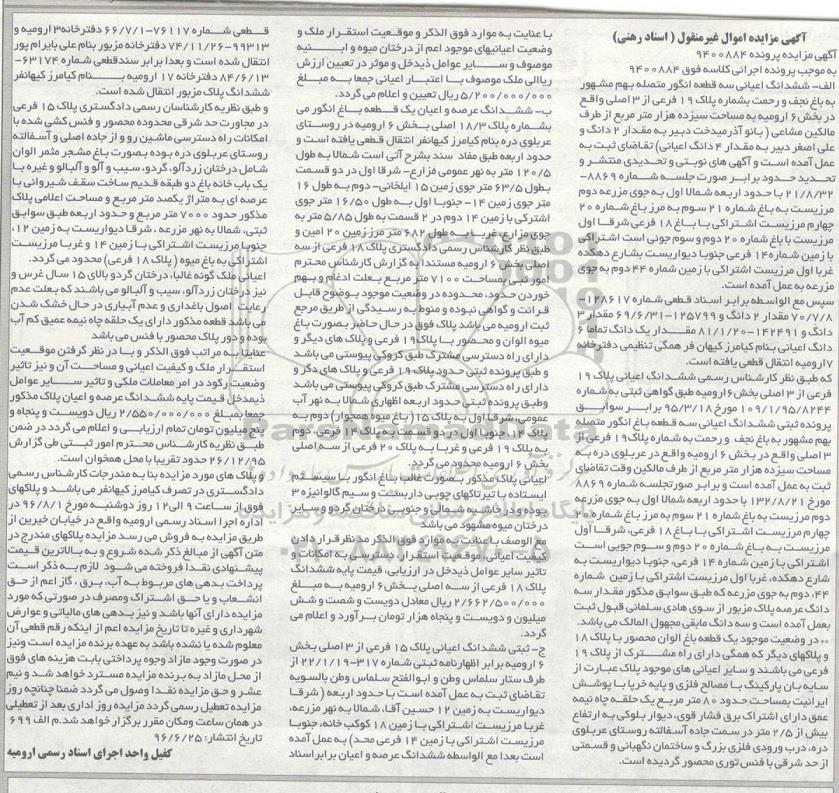 آگهی مزایده اموال غیرمنقول ( اسناد رهنی)
آگهی مزایده پرونده ۹۴۰۰۸۸۴
به موجب پرونده اجرائی کلاسه فوق ۹۴۰۰۸۸۴
الف- ششدانگ اعیانی سه قطعه انگور متصله بهم مشهور
به باغ نجف و رحمت بشماره پلاک ۱۹ فرعی از ۳ اصلی واقع
در بخش ۶ ارومیه به مساحت سیزده هزار متر مربع از طرف
مالکین مشاعی ( بانو آذرمیدخت دبیر به مقدار ۲ دانگ و
علی اصغر دبیر به مقدار ۴ دانگ اعیانی) تقاضای ثبت به
عمل آمده است و آگهی های نوبتی و تحدیدی منتشر و
تحدید حدود برابر صورت جلسه شماره ۸۸۶۹-
۲۱/۸/۳۲ با حدود اربعه شمالا اول به جوی مزرعه دوم
مرزیست به باغ شماره ۲۱ سوم به مرز باغ شماره ۲۰
چهارم مرزیست اشتراکی با باغ ۱۸ فرعی شرقا اول
مرزیست با باغ شماره ۲۰ دوم و سوم جوئی است اشتراکی
با زمین شماره ۱۴ فرعی جنوبا دیواریست بشارع دهکده
غربا اول مرزیست اشتراکی با زمین شماره ۴۴ دوم به جوی
مزرعه به عمل آمده است.
سپس مع الواسطه برابر اسناد قطعی شماره ۱۲۸۶۱۷-
۷۰/۷/۸ مقدار ۲ دانگ و ۱۲۵۷۹۹-۶۹/۶/۳۱ مقدار ۳
دانگ و ۱۴۲۴۹۱-۸۱/۱/۲۰ مقدار یک دانگ تماما ۶
دانگ اعیانی بنام کیامرز کیهان فر همگی تنظیمی دفترخانه
۷ ارومیه انتقال قطعی یافته است.
که طبق نظر کارشناس رسمی ششدانگ اعیانی پلاک ۱۹
فرعی از ۳ اصلی بخش ۶ ارومیه طبق گواهی ثبتی به شماره
۱۰۹/۱/۹۵/۸۲۴۴ مورخ ۹۵/۳/۱۸ برابر سوابق
پرونده ثبتی ششدانگ اعیانی سه قطعه باغ انگور متصله
بهم مشهور به باغ نجف و رحمت به شماره پلاک ۱۹ فرعی از
۳ اصلی واقع در بخش ۶ ارومیه واقع در عربلوی دره به
مساحت سیزده هزار متر مربع از طرف مالکین وقت تقاضای
ثبت به عمل آمده است و برابر صورتجلسه شماره ۸۸۶۹
مورخ ۱۳۲/۸/۲۱ با حدود اربعه شمالا اول به جوی مزرعه
دوم مرزیست به باغ شماره ۲۱ سوم به مرز باغ شماره ۲۰
چهارم مرزیست اشتراکی با باغ ۱۸ فرعی، شرقا اول
مرزیست به باغ شماره ۲۰ دوم و سوم جویی است
اشتراکی با زمین شماره ۱۴ فرعی، جنوبا دیواریست به
شارع دهکده، غربا اول مرزیست اشتراکی با زمین شماره
۴۴، دوم به جوی مزرعه که طبق سوابق مذکور مقدار سه
دانگ عرصه پلاک مزبور از سوی هادی سلمانی قبول ثبت
بعمل آمده است و سه دانگ مابقی مجهول المالک می باشد.
** در وضعیت موجود یک قطعه باغ الوان محصور با پلاک ۱۸
و پلاکهای دیگر که همگی دارای راه مشترک از پلاک ۱۹
فرعی می باشند و سایر اعیانی های موجود پلاک عبارت از
سایه بان پارکینگ با مصالح فلزی و پایه خرپا با پوشش
ایرانیت بمساحت حدود ۸۰ متر مربع یک حلقه چاه نیمه
عمق دارای اشتراک برق فشار قوی، دیوار بلوکی به ارتفاع
بیش از ۲/۵ متر در سمت جاده آسفالته روستای عربلوی
دره، درب ورودی فلزی بزرگ و ساختمان نگهبانی و قسمتی
از حد شرقی با فنس توری محصور گردیده است.
با عنایت به موارد فوق الذکر و موقعیت استقرار ملک و
وضعیت اعیانیهای موجود اعم از درختان میوه و ابنیه
موصوف و سایر عوامل ذیدخل و موثر در تعیین ارزش
ریالی ملک موصوف با اعتبار اعیانی جمعا به مبلغ
۵/۲۰۰/۰۰۰/۰۰۰ ریال تعیین و اعلام می گردد.
ب- ششدانگ عرصه و اعیان یک قطعه باغ انگور می
بشماره پلاک ۱۸/۳ اصلی بخش ۶ ارومیه در روستای
عربلوی دره بنام کیامرز کیهانفر انتقال قطعی یافته است و
حدود اربعه طبق مفاد سند بشرح آتی است شمالا به طول
۱۲۰/۵ متر به نهر عمومی مزارع- شرقا اول در دو قسمت
بطول ۶۳/۵ متر جوی زمین ۱۵ ایلخانی- دوم به طول ۱۶
متر جوی زمین ۱۴- جنوبا اول به طول ۱۶/۵۰ متر جوی
اشترکی با زمین ۱۴ دوم در ۲ قسمت به طول ۵/۸۵ متر به
جوی مزارع- غربا به طول ۶۸۲ متر مرز زمین ۲۰ امین و
طبق نظر کارشناس رسمی دادگستری پلاک ۱۸ فرعی از سه
اصلی بخش ۶ ارومیه مستندا به گزارش کارشناس محترم
امور ثبی بمساحت ۷۱۰۰ متر مربع بعلت ادغام و بهم
خوردن حدود، محدوده در وضعیت موجود بوضوح قابل
قرائت و گواهی نبوده و منوط به رسیدگی از طریق مرجع
ثبت ارومیه می باشد پلاک فوق در حال حاضر بصورت باغ
میوه الوان و محصور با پلاک ۱۹ فرعی و پلاک های دیگر و
دارای راه دسترسی مشترک طبق کروکی پیوستی می باشد
و طبق پرونده ثبتی حدود پلاک ۱۹ فرعی و پلاک های دکر و
دارای راه دسترسی مشترک طبق کروکی پیوستی می باشد
وطبق پرونده ثبتی حدود اربعه اظهاری شمالا به نهر آب
عمومی، شرقا اول به پلاک ۱۵ ( باغ میوه همجوار) دوم به
پلاک ۱۴، جنوبا اول در دو قسمت به پلاک ۱۴ فرعی دوم
به پلاک ۱۹ فرعی و غربا به پلاک ۲۰ فرعی از سه اصلی
بخش ۶ ارومیه محدود می گردد.
اعیانی پلاک مذکور بصورت غالب باغ انگور با سیستم
ایستاده با تیراکهای چوبی داربست و سیم گالوانیزه ۳
بوده و در حاشیه شمالی و جنوبی درختان گردو و سایر
درختان میوه مشهود می باشد
مع الوصف با عنایت به موارد فوق الذکر مد نظر قرار دادن
کیفیت اعیانی، موقعیت استقرار و دسترسی به امکانات و
تاثیر سایر عوامل ذیدخل در ارزیابی، قیمت پایه ششدانگ
پلاک ۱۸ فرعی از سه اصلی بخش ۶ ارومیه به مبلغ
۲/۶۶۲/۵۰۰/۰۰۰ ریال معادل دویست و شصت و شش
میلیون و دویست و پنجاه هزار تومان برآورد و اعلام می
گردد.
ج- ثبتی ششدانگ اعیانی پلاک ۱۵ فرعی از ۳ اصلی بخش
۶ ارومیه برابر اظهارنامه ثبتی شماره ۳۱۷-۲۲/۱/۱۹ از
طرف ستار سلماس وطن و ابوالفتح سلماس وطن بالسویه
تقاضای ثبت به عمل آمده است با حدود اربعه ( شرقا
دیواریست به زمین ۱۲ حسین آقا، شمالا به نهر مزرعه،
غربا مرزیست اشتراکی با زمین ۱۸ کوکب خانه، جنوبا
مرزیست اشتراکی با زمین ۱۴ فرعی محد) به عمل آمده
است بعدا مع الواسطه ششدانگ عرصه و اعیان برابر اسناد
قطعی شماره ۷۶۱۱۷-۶۶/۷/۱ دفترخانه ۳ ارومیه و
۹۹۳۱۳-۷۴/۱۱/۲۶ دفترخانه مزبور بنام علی بایرام پور
انتقال شده است و بعدا برابر سند قطعی شماره ۶۳۱۷۴-
۸۴/۶/۱۳ دفترخانه ۱۷ ارومیه بنام کیامرز کیهانفر
ششدانگ پلاک مزبور انتقال شده است.
و طبق نظریه کارشناسان رسمی دادگستری پلاک ۱۵ فرعی
در مجاورت حد شرقی محدوده محصور و فنس کشی شده با
امکانات راه دسترسی ماشین رو و از جاده اصلی و آسفالته
روستای عربلوی دره بوده بصورت باغ مشجر مثمر الوان
شامل درختان زردآلو، گردو، سیب و آلو و آلبالو و غیره با
یک باب خانه باغ دو طبقه قدیم ساخت سقف شیروانی با
عرصه ای به متراژ یکصد متر مربع و مساحت اعلامی پلاک
مذکور حدود ۷۰۰۰ متر مربع و حدود اربعه طبق سوابق
ثبتی، شمالا به نهر مزرعه، شرقا دیواریست به زمین ۱۲،
جنوبا مرزیست اشتراکی با زمین ۱۴ و غربا مرزیست
اشتراکی به باغ میوه ( پلاک ۱۸ فرعی) محدود می گردد.
اعیانی ملک گونه غالبا، درختان گردو بالای ۱۵ سال غرس و
نیز درختان زردآلو، سیب و آلبالو می باشند که بعلت عدم
رعایت اصول باغداری و عدم آبیاری در حال خشک شدن
می باشد قطعه مذکور دارای یک حلقه چاه نیمه عمیق کم آب
بوده و دور پلاک محصور با فنس می باشد
عنایتا به مراتب فوق الذکر و با در نظر گرفتن موقعیت
استقرار ملک و کیفیت اعیانی و مساحت آن و نیز تاثیر
وضعیت رکود در امر معاملات ملکی و تاثیر سایر عوامل
ذیمدخل قیمت پایه ششدانگ عرصه و اعیان پلاک مذکور
جمعا بمبلغ ۲/۵۵۰/۰۰۰/۰۰۰ ریال دویست و پنجاه و
پنج میلیون تومان تمام ارزیابی و اعلام می گردد در ضمن
طبق نظریه کارشناس محترم امور ثبتی طی گزارش
۲۶/۱۲/۹۵ حدود تقریبا با محل همخوان است.
و پلاک های مورد مزایده بنا به مندرجات کارشناس رسمی
دادگستری در تصرف کیامرز کیهانفر می باشد و پلاکهای
فوق از ساعت ۹ الی ۱۲ روز دوشنبه مورخ ۹۶/۸/۱ در
اداره اجرا اسناد رسمی ارومیه واقع در خیابان خیرین از
طریق مزایده به فروش می رسد مزایده پلاکهای مندرج در
متن آگهی از مبالغ ذکر شده شروع و به بالاترین قیمت
پیشنهادی نقدا فروخته می شود لازم به ذکر است
پرداخت بدهی های مربوط به آب، برق، گاز اعم از حق
انشعاب و یا حق اشتراک ومصرف در صورتی که مورد
مزایده دارای آنها باشد و نیز بدهی های مالیاتی و عوارض
شهرداری و غیره تا تاریخ مزایده اعم از اینکه رقم قطعی آن
معلوم شده یا نشده باشد به عهده برنده مزایده است ونیز
در صورت وجود مازاد وجوه پرداختی بابت هزینه های فوق
از محل مازاد به برنده مزایده مسترد خواهد شد و نیم
عشر و حق مزایده نقدا وصول می گردد ضمنا چنانچه روز
مزایده تعطیل رسمی گردد مزایده روز اداری بعد از تعطیلی
در همان ساعت ومکان مقرر برگزار خواهد شد. م الف ۶۹۹
تاریخ انتشار: ۹۶/۶/۲۵
کفیل واحد اجرای اسناد رسمی ارومیه